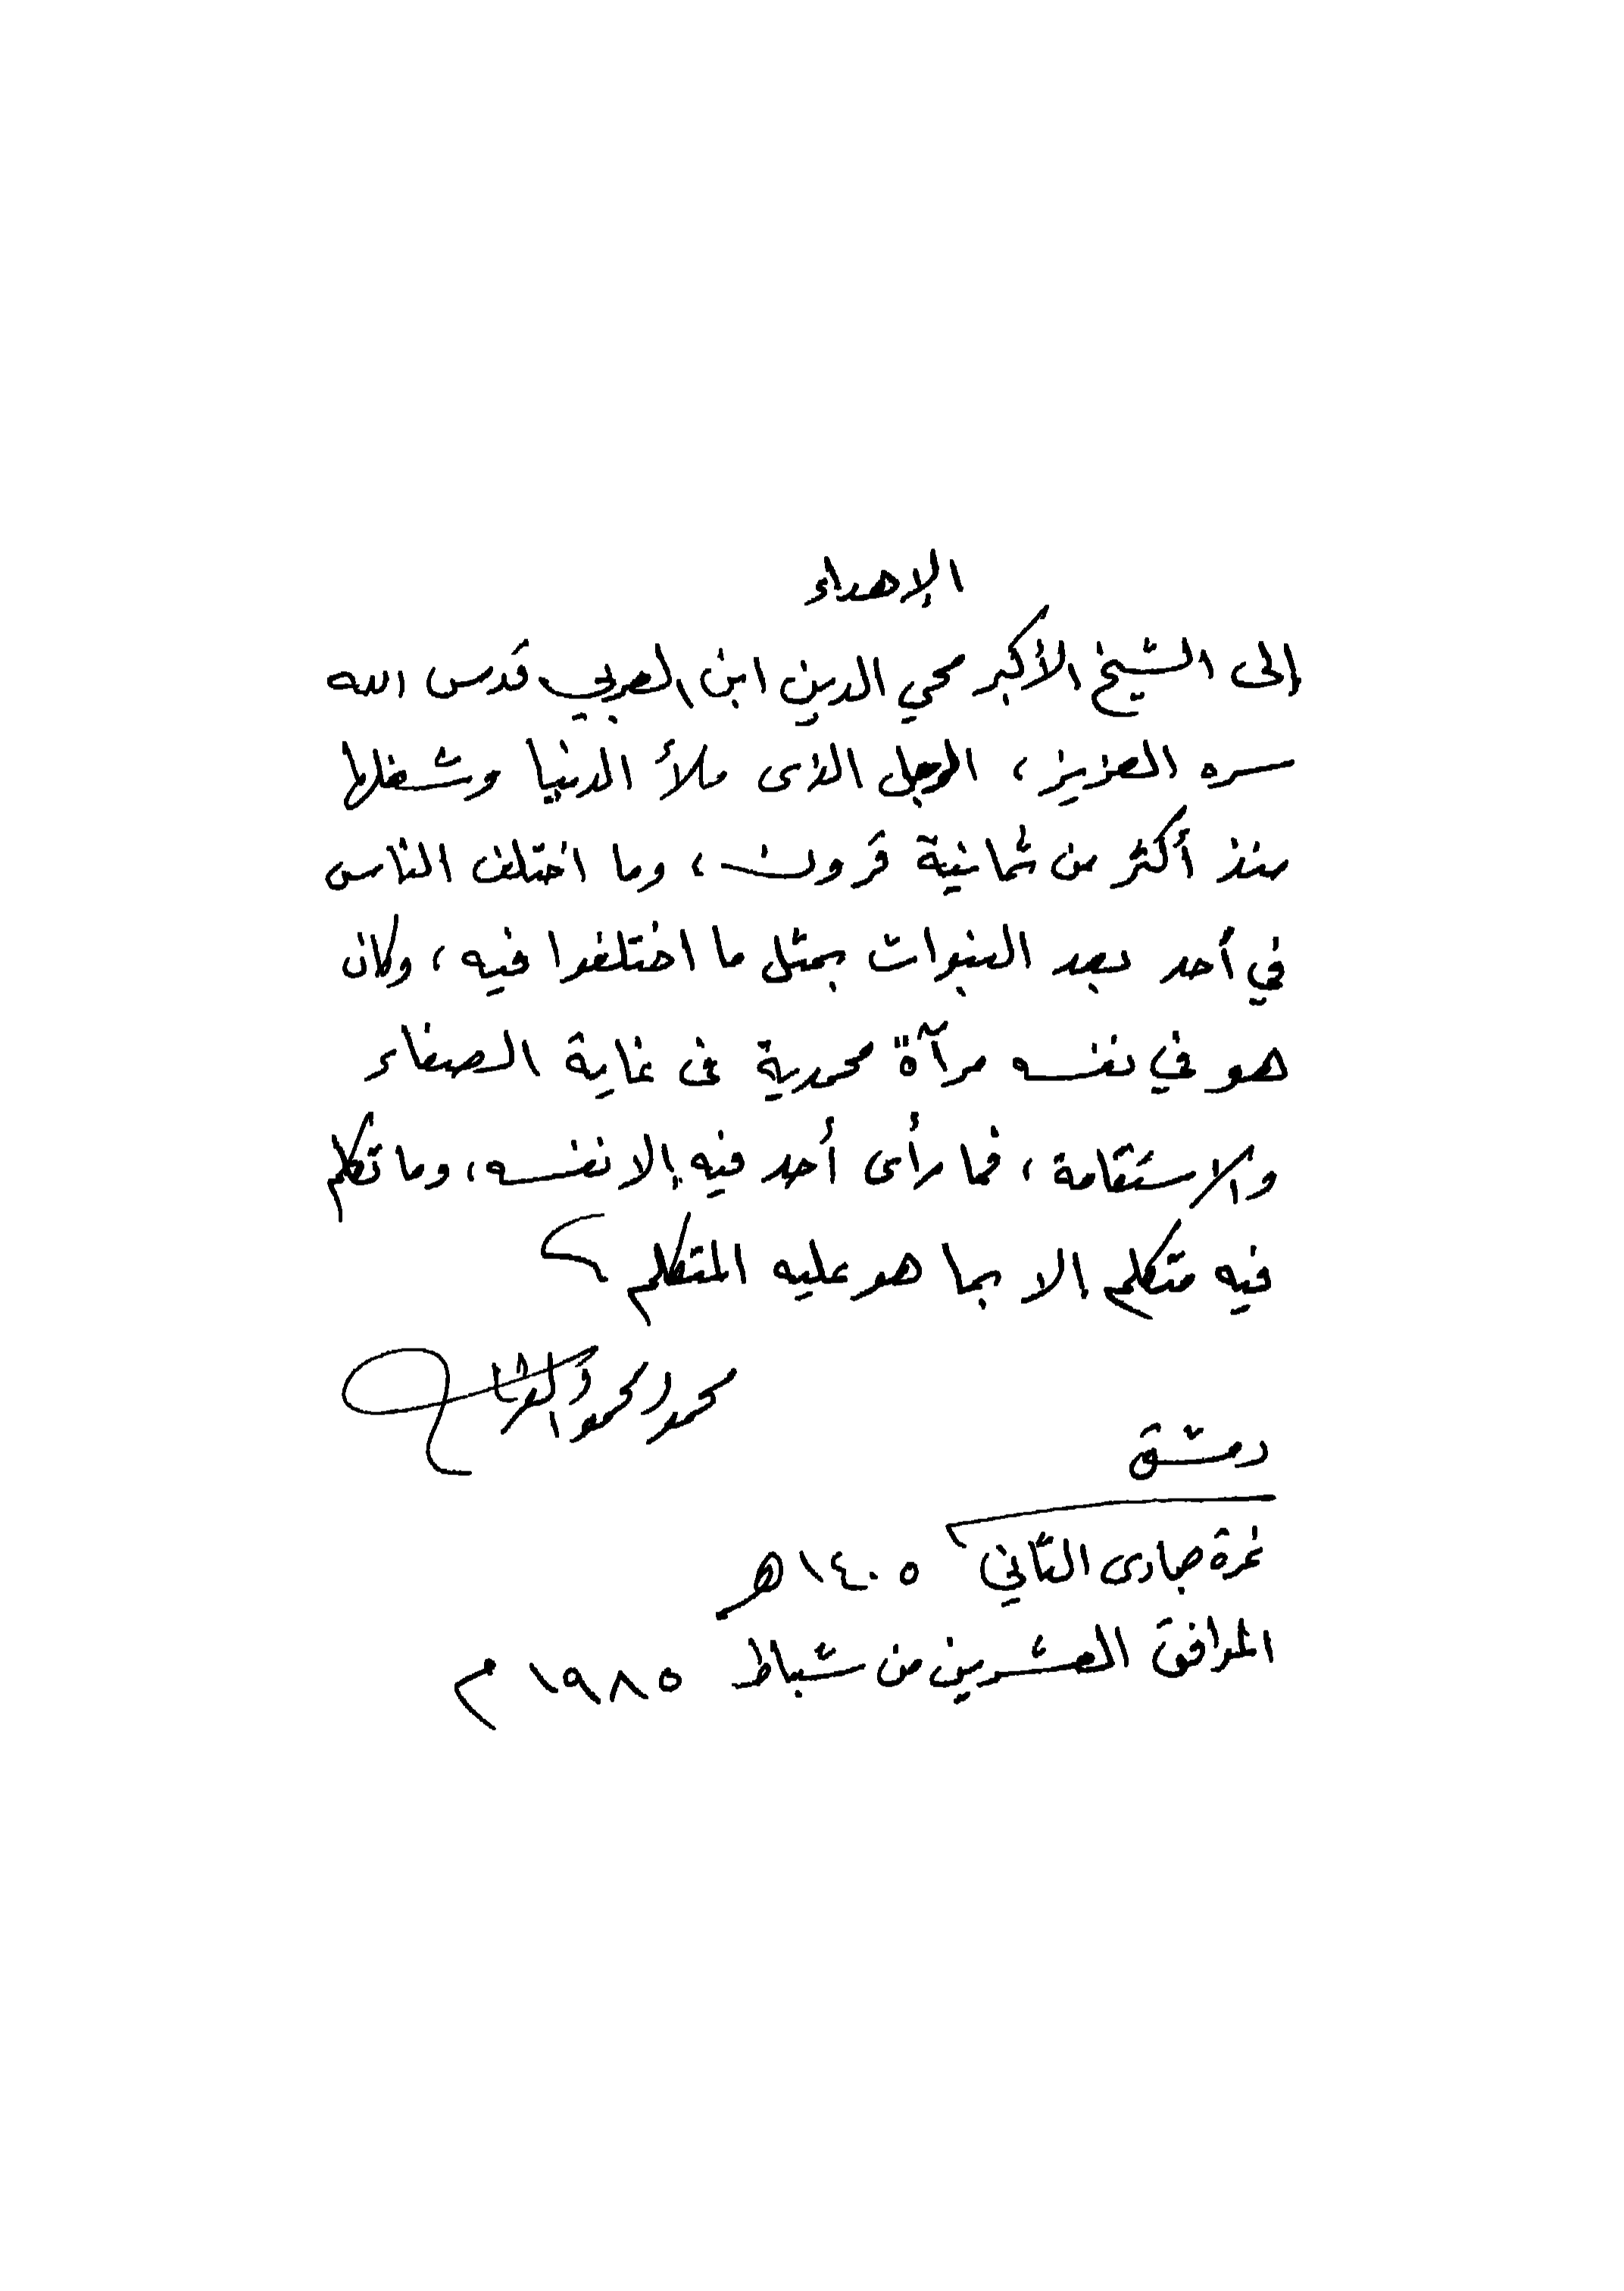 الإهداء
إلى الشيخ الأكبر محي الدين ابن العربي قدس الله
سره العزيز، الرجل الذى ملأ الدنيا وشغلها
منذ أكثر من ثمانية قرون، وما اختلف الناس
في أحد بعد النبوات بمثل ما اختلفوا فيه، وكان
هو في نفسه مرآة محمدية فى غاية الصفاء
والاستقامة، فما رأى أحد فيه إلا نفسه، وما تكلم
فيه متكلم إلا بما هو عليه المتكلم
محمود محمود الغراب
دمشق
غرة جمادى الثاني ١٤٠٥ هـ
الموافق العشرين من شباط ١٩٨٥ م